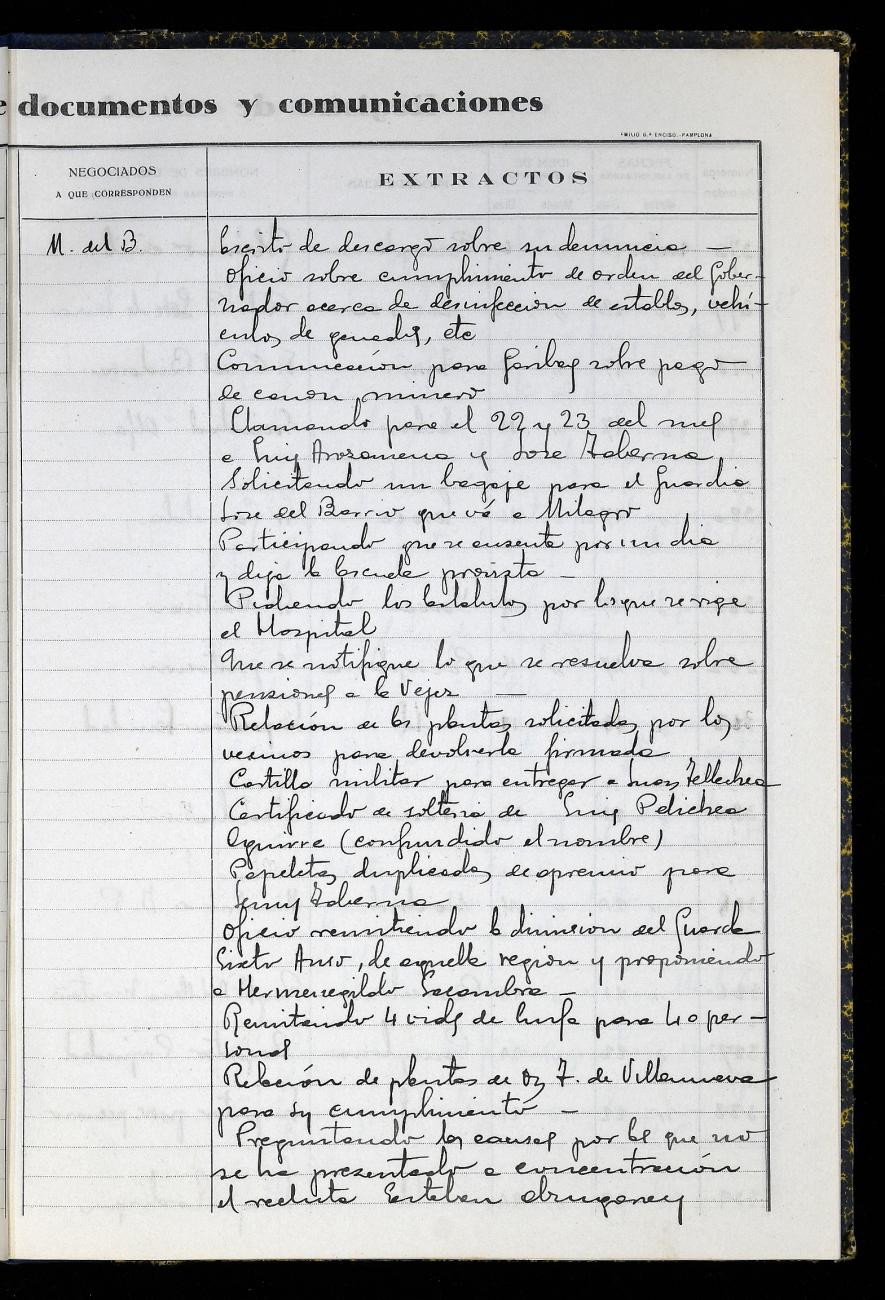 documentos y comunicaciones
EMILIO G.ª ENCISO.-PAMPLONA
NEGOCIADOS
A QUE CORRESPONDEN
EXTRACTOS
M. del B.
Escrito de descargo sobre su denuncia —
Oficio sobre cumplimiento de orden del Gober-
nador acerca de desinfeccion de establos, vehi-
culos de ganados, etc
Comunicación para Garibay sobre pago
de canon minero
Llamando para el 22 y 23 del mes
a Luis Arozamena y Jose Taberna
Solicitando un bagaje para el Guardia
Jose del Barrio que vá a Milagro
Participando que se ausenta por un dia
y deja la Escuela provista —
Pidiendo los Estatutos por los que se rige
el Hospital
Que se notifique lo que se resuelva sobre
pensiones a la Vejez —
Relación de las plantas solicitadas por los
vecinos para devolverla firmada
Cartilla militar para entregar a Juan Tellechea
Certificado de solteria de Luis Pelichea
Aguirre (confundido el nombre)
Papeletas duplicadas de apremio para
Taberna
Oficio remitiendo la dimision del Guarda
Sixto Anso, de aquella region y proponiendo
a Hermenegildo
Remitiendo 4 vides de linfa para 40 per-
sonas
Relación de plantas de F. de Villanueva
para su cumplimiento —
Preguntando las causas por las que no
se ha presentado a concentración
el recluta Esteban